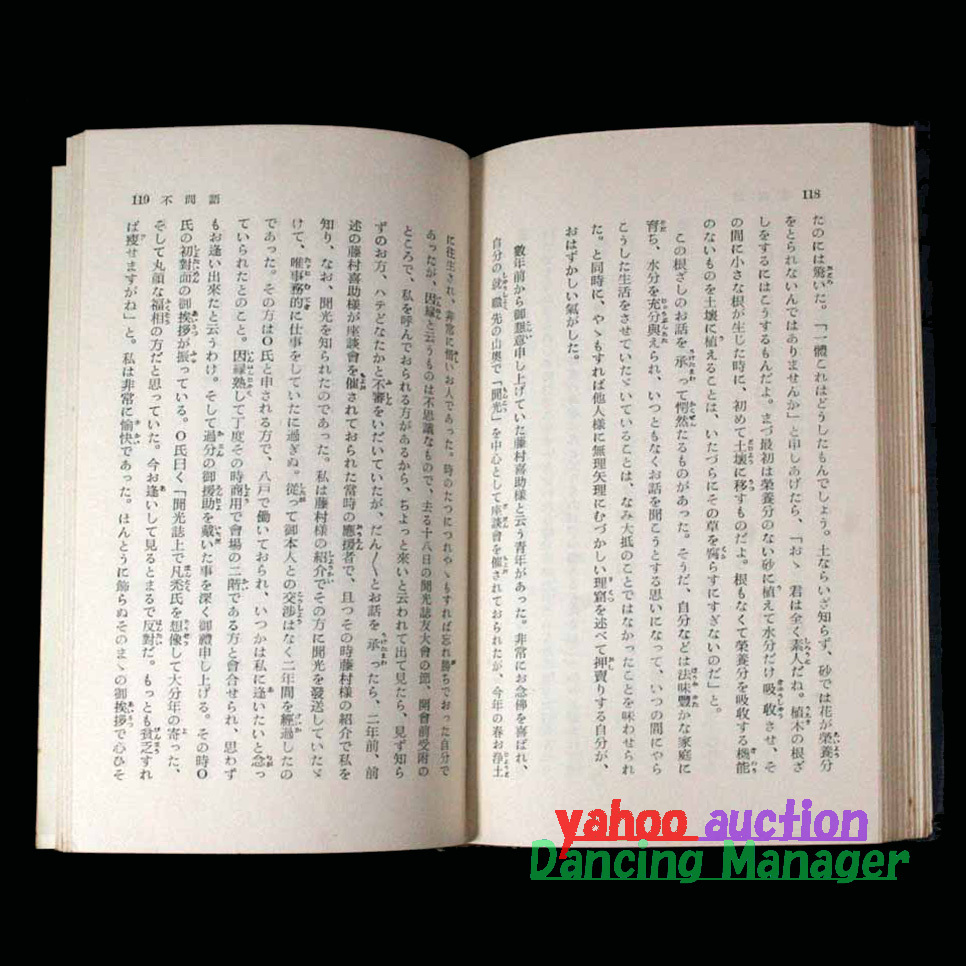 118
たのには驚いた。「一體これはどうしたもんでしょう。土ならいざ知らず、砂では花が榮養分
をとられないんではありませんか」と申しあげたら、「おゝ 君は全く素人だね。植木の根ざ
しをするにはこうするもんだよ。まづ最初は榮養分のない砂に植えて水分だけ吸收させ、そ
の間に小さな根が生じた時に、初めて土壤に移すものだよ。根もなくて榮養分を吸收する機能
のないものを土壤に植えることは、いたづらにその草を腐らすにすぎないのだ」と。
この根ざしのお話を承って愕然たるものがあった。そうだ、自分などは法味豐かな家庭に
育ち、水分を充分與えられ、いつともなくお話を聞こうとする思いになって、いつの間にやら
こうした生活をさせていたゞいていることは、なみ大抵のことではなかったことを味わせられ
た。と同時に、やゝもすれば他人樣に無理矢理にむづかしい理窟を述べて押賣りする自分が、
おはずかしい氣がした。
數年前から御懇意申し上げていた藤村喜助樣と云う青年があった。非常にお念佛を喜ばれ、
自分の就職先の山奧で「聞光」を中心として座談會を催されておられたが、今年の春お淨土
119 不問語
に往生され、非常に惜いお人であった。時のたつにつれやゝもすれば忘れ勝ちでおった自分で
あったが、因緣と云うものは不思議なもので、去る十八日の聞光誌友大會の節、開會前受附の
ところで、私を呼んでおられる方があるから、ちよっと來いと云われて出て見たら、見ず知ら
ずのお方、ハテどなたかと不審をいだいていたが、だん〱とお話を承ったら、二年前、前
述の藤村喜助樣が座談會を催されておられた當時の應援者で、且つその時藤村樣の紹介で私を
知り、なお、聞光を知られたのであった。私は藤村樣の紹介でその方に聞光を發送していたゞ
けで、唯事務的に仕事をしていたに過ぎぬ。從って御本人との交渉はなく二年間を經過したの
であった。その方はO氏と申される方で、八戸で働いておられ、いつかは私に逢いたいと念っ
ていられたとのこと。因緣熟して丁度その時商用で會場の二階である方と會合せられ、思わず
もお逢い出來たと云うわけ。そして過分の御援助を戴いた事を深く御禮申し上げる。その時O
氏の初對面の御挨拶が振っている。O氏曰く「聞光誌上で凡禿氏を想像して大分年の寄った、
そして丸顏な福相の方だと思っていた。今お逢いして見るとまるで反對だ。もっとも貧乏すれ
ば瘦せますがね」と。私は非常に愉快であった。ほんとうに飾らぬそのまゝの御挨拶で心ひそ
yahoo auction
Dancing Manager